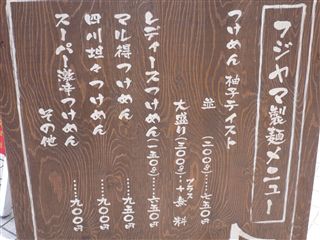 フジヤマ製麺メニュー
つけめん 柚子テイスト
並 (三〇〇g)……七五〇円
大盛り(三〇〇g)……+プラス 無料
レディースつけめん(一五〇g)……六五〇円
マル得つけめん……九五〇円
四川坦々つけめん……九〇〇円
スーパー激辛つけめん……九〇〇円
その他